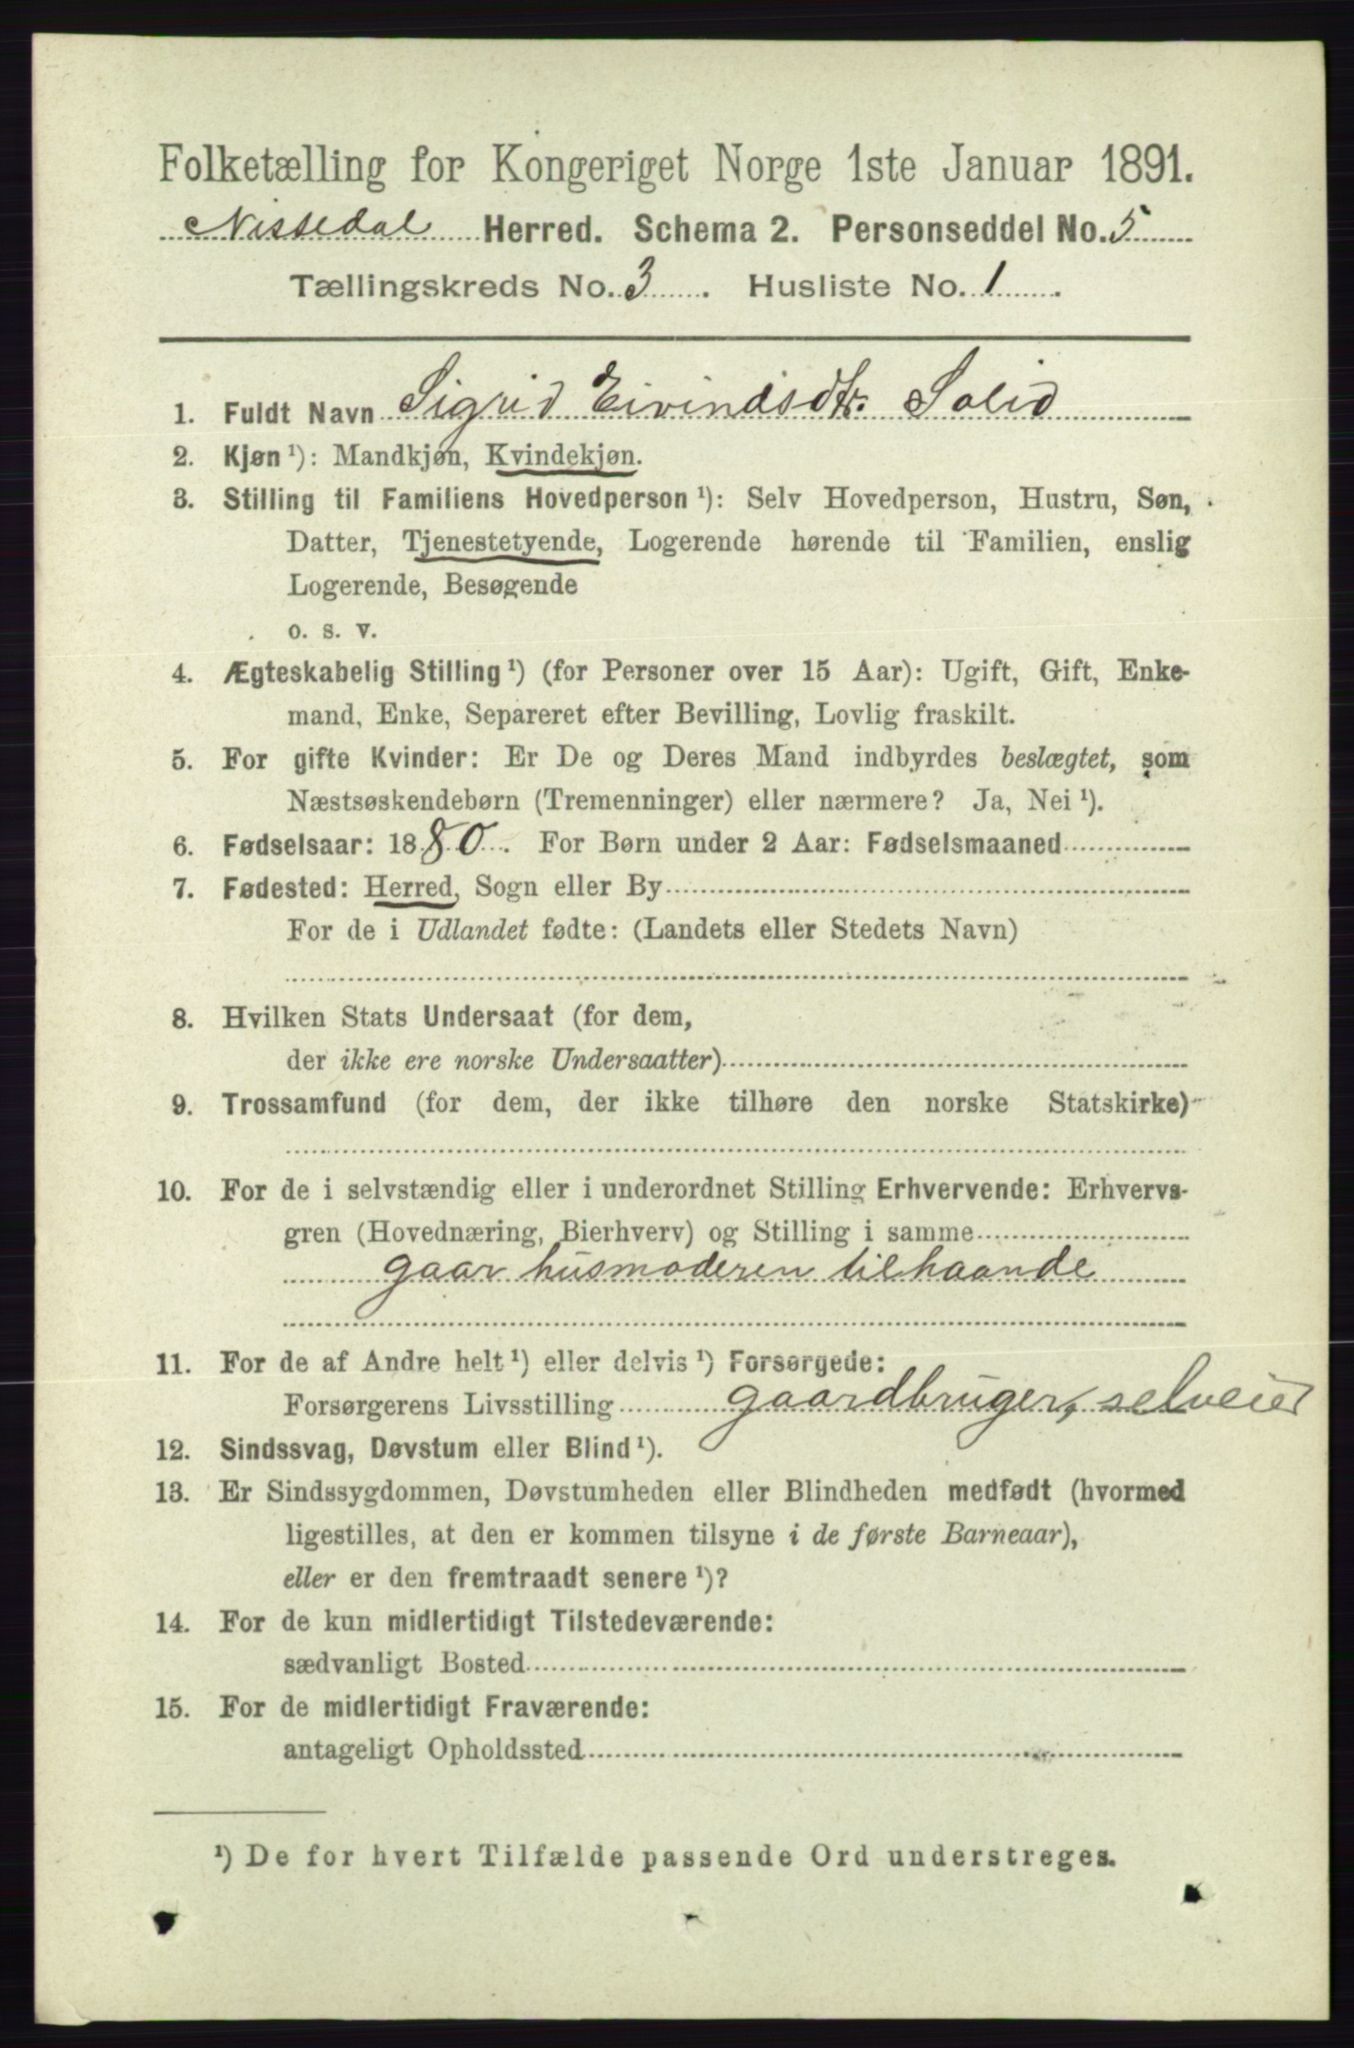 Folketælling for Kongeriget Norge 1ste Januar 1891.
Nissedal Herred. Schema 2. Personseddel No. 5
Tællingskreds No. 3. Husliste No. 1.
1. Fuldt Navn Sigrid Eivindsdtr. Solid
2. Kjøn ¹): Mandkjøn, Kvindekjøn.
3. Stilling til Familiens Hovedperson ¹): Selv Hovedperson, Hustru, Søn,
Datter, Tjenestetyende, Logerende hørende til Familien, enslig
Logerende, Besøgende
o. s. v.
4. Ægteskabelig Stilling ¹) (for Personer over 15 Aar): Ugift, Gift, Enke-
mand, Enke, Separeret efter Bevilling, Lovlig fraskilt.
5. For gifte Kvinder: Er De og Deres Mand indbyrdes beslægtet, som
Næstsøskendebørn (Tremenninger) eller nærmere? Ja, Nei ¹).
6. Fødselsaar: 1880. For Børn under 2 Aar: Fødselsmaaned
7. Fødested: Herred, Sogn eller By
For de i Udlandet fødte: (Landets eller Stedets Navn)
8. Hvilken Stats Undersaat (for dem,
der ikke ere norske Undersaatter)
9. Trossamfund (for dem, der ikke tilhøre den norske Statskirke)
10. For de i selvstændig eller i underordnet Stilling Erhvervende: Erhvervs-
gren (Hovednæring, Bierhverv) og Stilling i samme
gaar husmoderen tilhaande
11. For de af Andre helt ¹) eller delvis ¹) Forsørgede:
Forsørgerens Livsstilling gaardbruger, selveier
12. Sindssvag, Døvstum eller Blind ¹).
13. Er Sindssygdommen, Døvstumheden eller Blindheden medfødt (hvormed
ligestilles, at den er kommen tilsyne i de første Barneaar),
eller er den fremtraadt senere ¹)?
14. For de kun midlertidigt Tilstedeværende:
sædvanligt Bosted
15. For de midlertidigt Fraværende:
antageligt Opholdssted
¹) De for hvert Tilfælde passende Ord understreges.